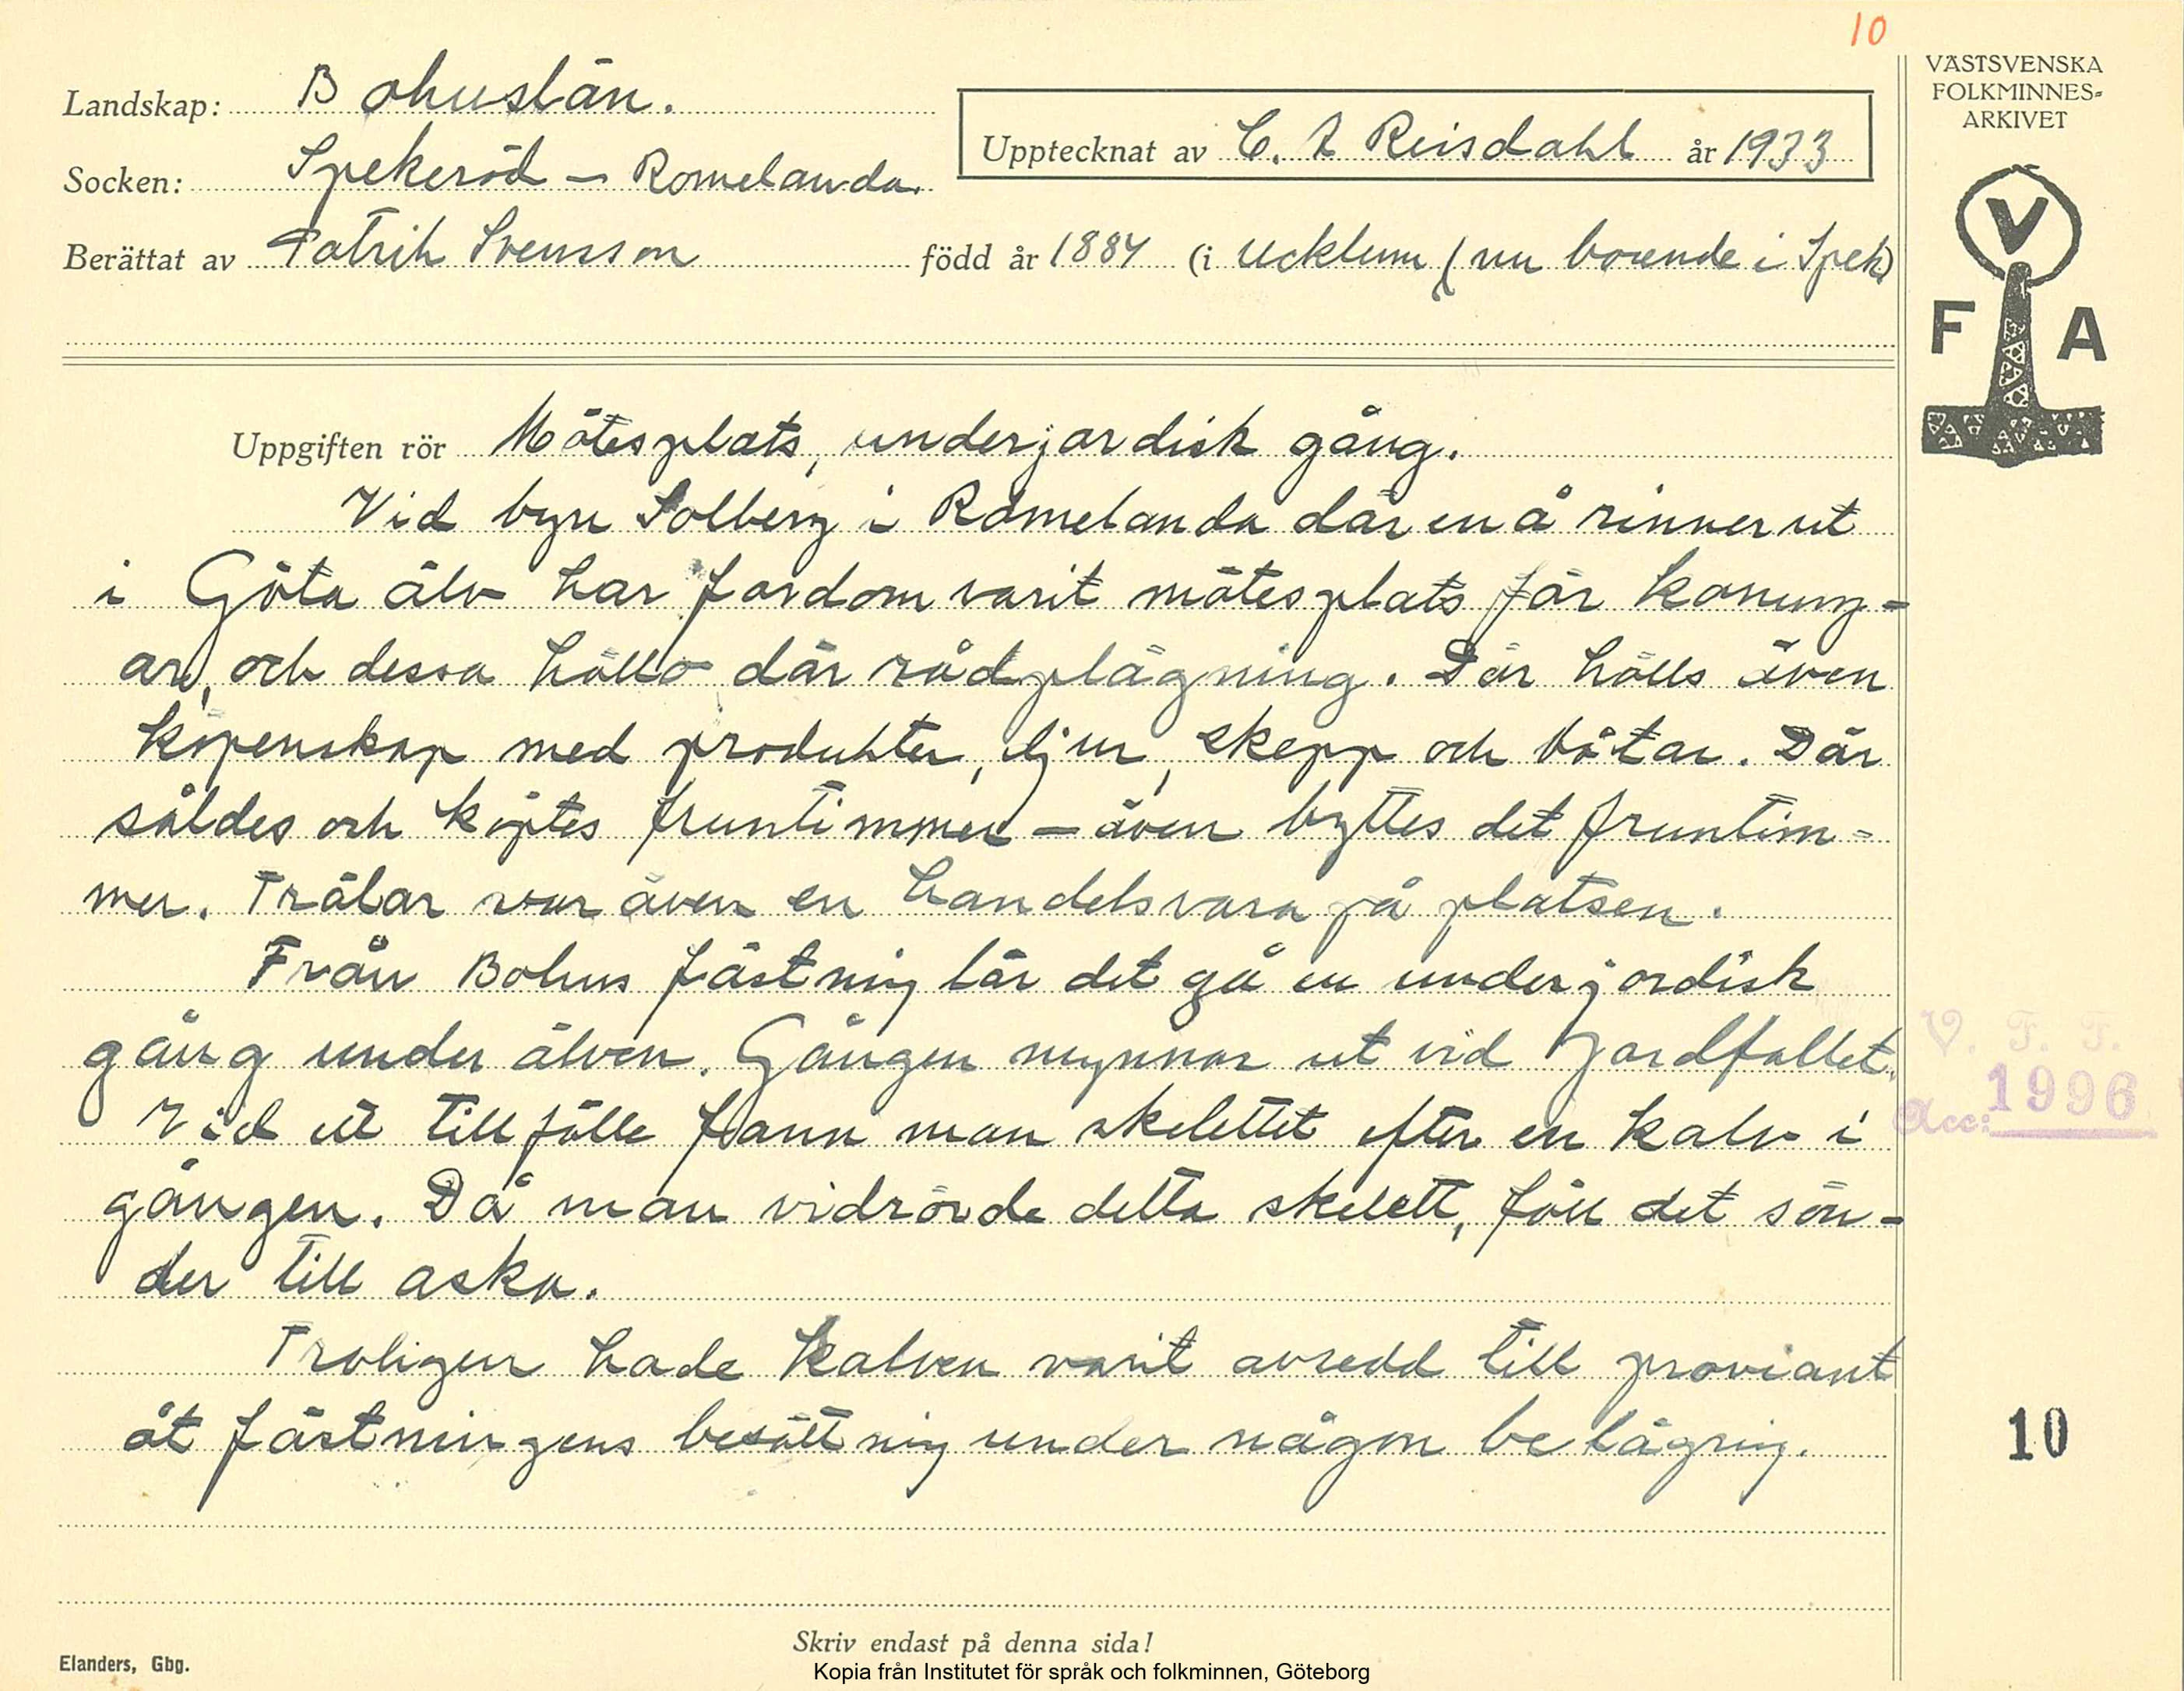 10
Landskap: Bohuslän.
Socken: Spekeröd – Romelanda.
Berättat av Patrik Svensson född år 1884 (i Ucklum (nu boende i Spek)
Upptecknat av C. A Reisdahl år 1933
VÄSTSVENSKA
FOLKMINNES-
ARKIVET
V
F A
Uppgiften rör Mötesplats, underjordisk gång.
Vid byn Solberg i Romelanda där en å rinner ut
i Göta älv har fordom varit mötesplats för konung-
ar, och dessa höllo där rådplägning. Där hölls även
köpenskap med produkter, djur, skepp och båtar. Där
såldes och köptes fruntimmer – även byttes det fruntim-
mer. Trälar var även en handelsvara på platsen.
Från Bohus fästning lär det gå en underjordisk
gång under älven. Gången mynnar ut vid Jordfallet.
Vid ett tillfälle fann man skelettet efter en kalv i
gången. Då man vidrörde detta skelett, föll det sön-
der till aska.
Troligen hade kalven varit avsedd till proviant
åt fästningens besättning under någon belägring.
V. F. F.
Acc: 1996
10
Skriv endast på denna sida!
Elanders, Gbg.
Kopia från Institutet för språk och folkminnen, Göteborg